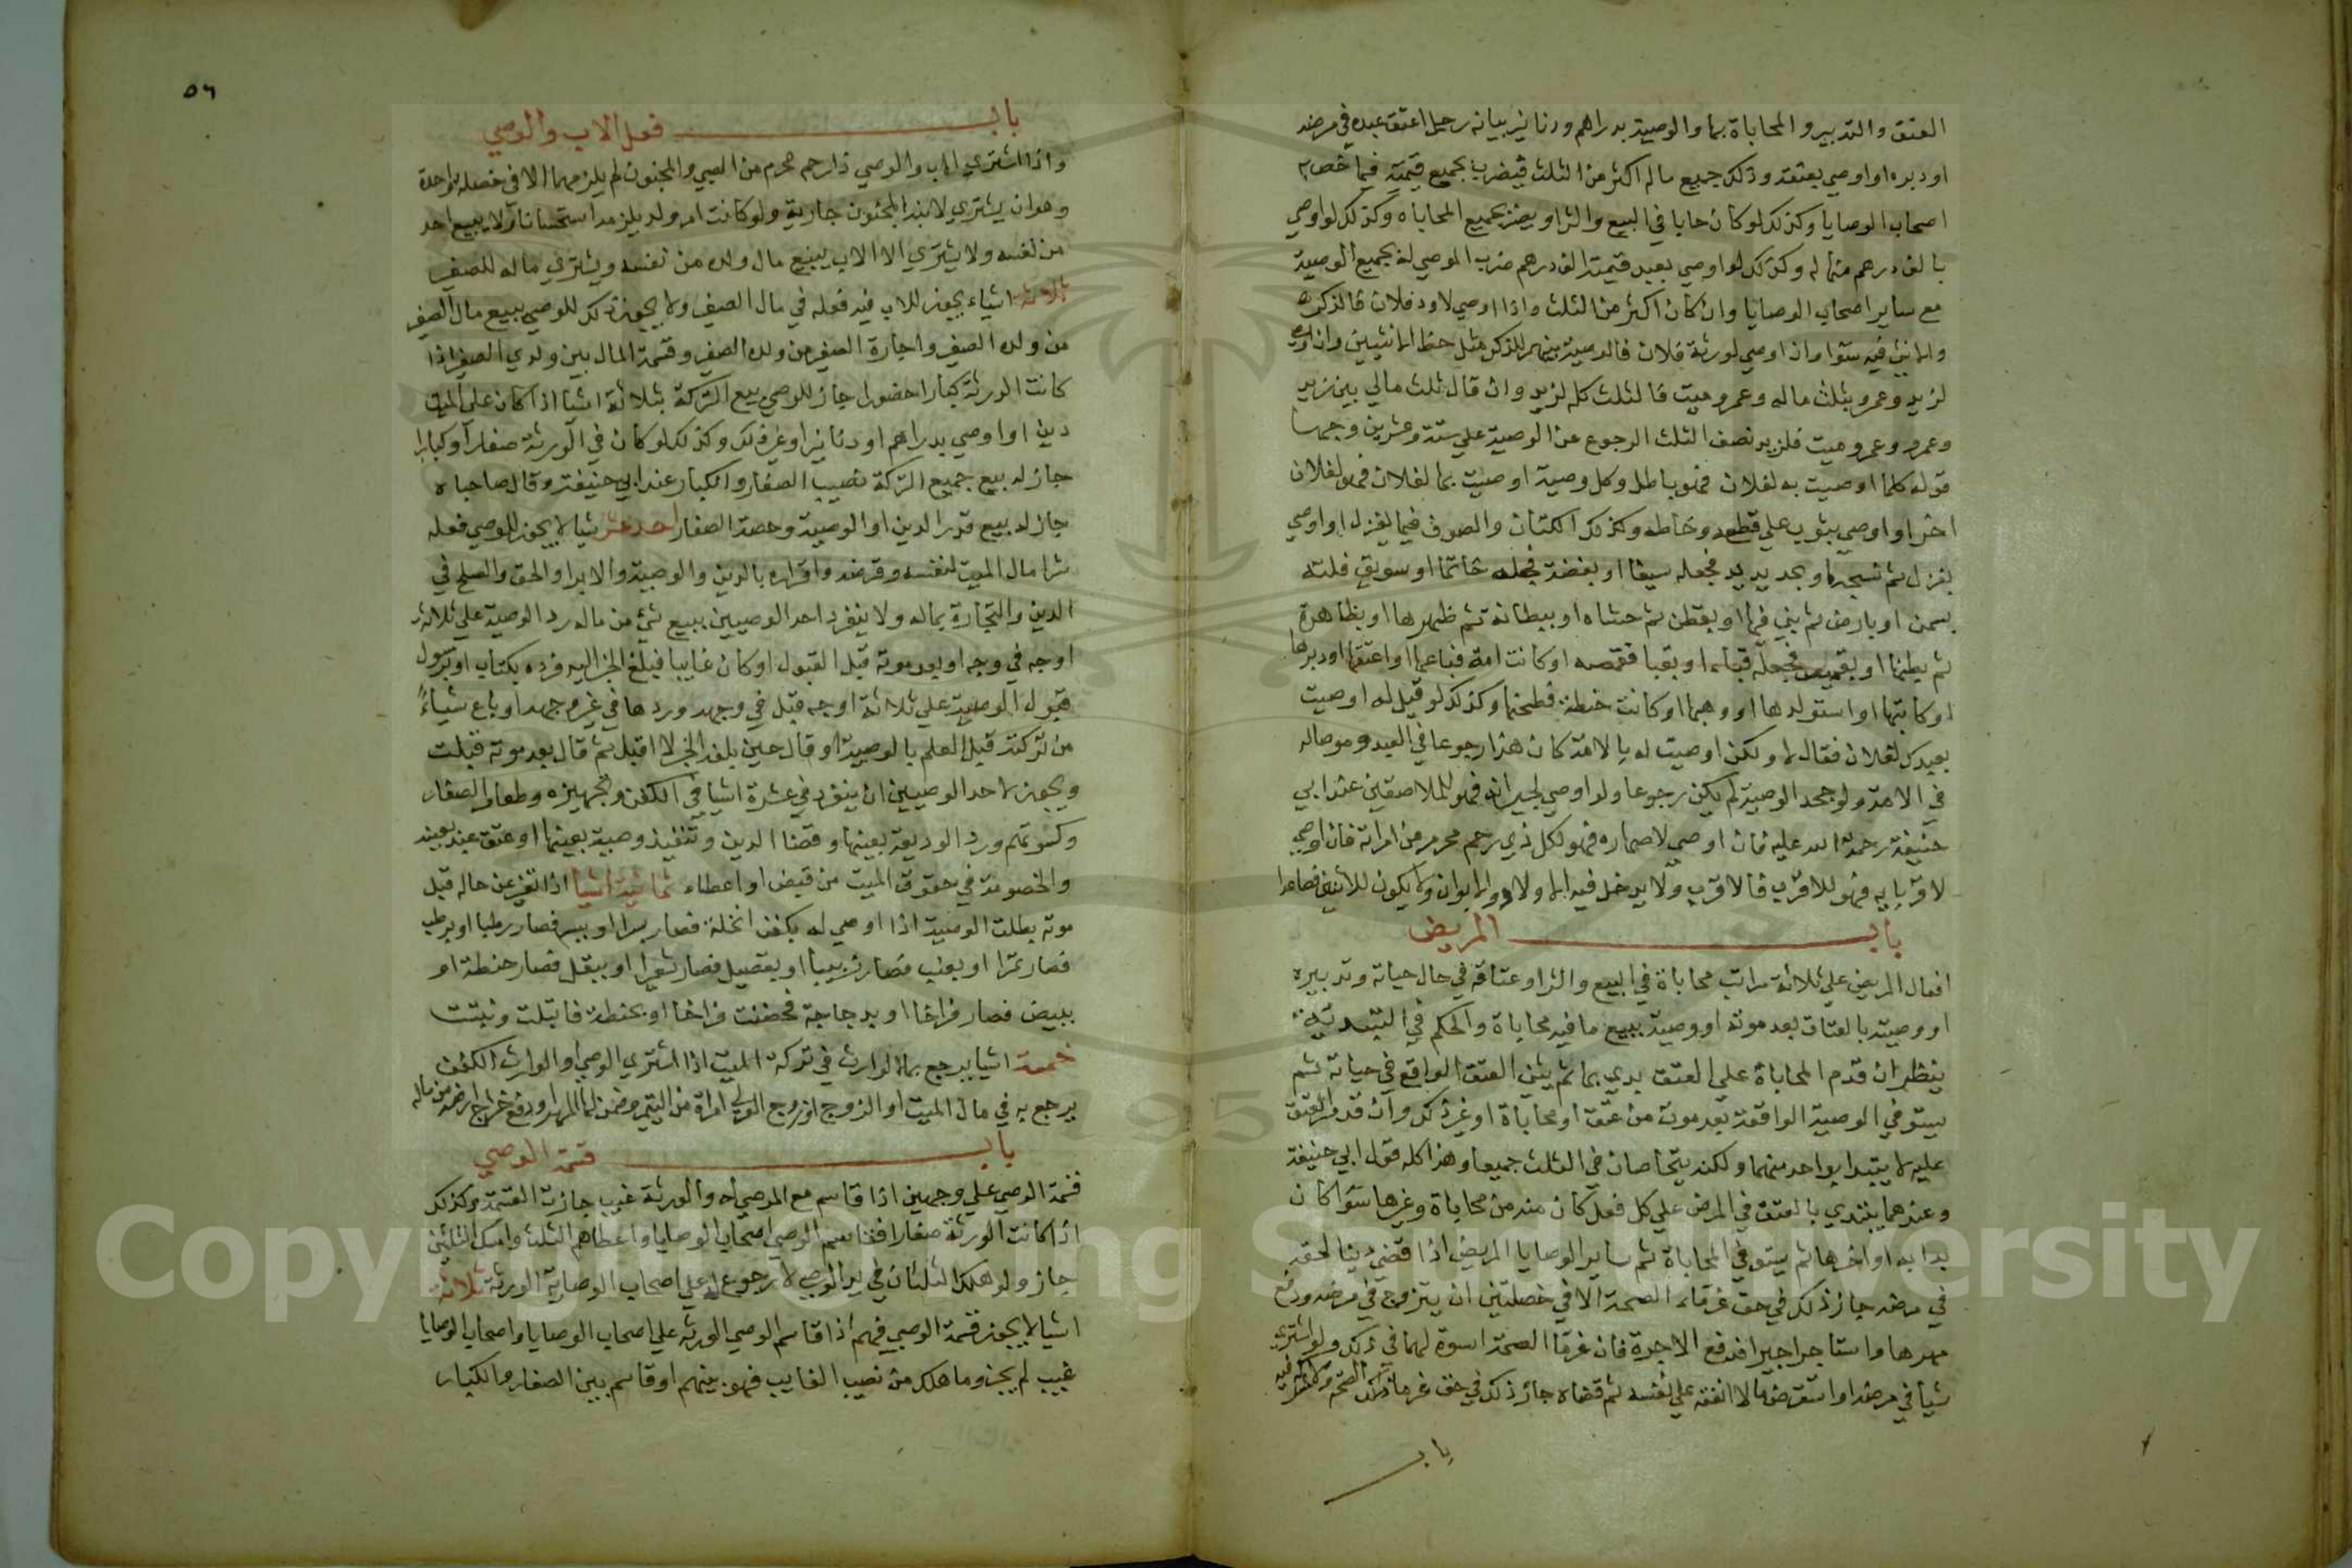 العتق والتدبير والمحاباة بها والوصية بدراهم ودنانير بيانه رجل اعتق عبده في مرضه
او دبره او اوصي بعتقه وذلك جميع ماله اكثر من الثلث فيضرب بجميع قيمته فيما خص
اصحاب الوصايا وكذلك لو كان حابا في البيع والشراء يضرب بجميع المحاباه وكذلك لو اوصي
بالف درهم مثاله وكذلك لو اوصي بعبد قيمته الف درهم ضرب الموصي له بجميع الوصية
مع ساير اصحاب الوصايا وان كان اكثر من الثلث واذا اوصي لاود فلان فالذكر
والانثي فيه سوا وان اوصي لورثة فلان فالوصية بينهم للذكر مثل حظ الانثيين وان اوصي
لزيد وعمرو بثلث ماله وعمرو ميت فالثلث كله لزيد وان قال ثلث مالي بين زيد
وعمرو وعمرو ميت فلزيد نصف الثلث الرجوع عن الوصية علي ستة وعشرين وجها
قوله كلما اوصيت به لفلان فهو باطل وكل وصية اوصيت بها لفلان فهو لفلان
اخر او اوصي بثوب علي قطعه وخاطه وكذلك الكتان والصوف فيما يغزل او اوصي
بغزل ثم نسجه او بحديد يد فجعله سيفا او بفضة فجعله خاتما او سويق فلته
بسمن او بارض ثم بني فيها او بقطن ثم حشاه او ببطانة ثم ظهرها او بظاهرة
ثم بطنها او بقميص فجعله قباء او بقبا فقمصه او كانت امة فباعها او اعتقها او دبرها
او كاتبها او استولدها او وهبها او كانت حنطة فطحنها وكذلك لو قيل له اوصيت
بعبدك لفلان فقال لا ولكن اوصيت له بالامة كان هذا رجوعا في العبد وموصاله
في الامة ولو جحد الوصية لم يكن رجوعا ولو اوصي لجيرانه فهو للملاصقين عند ابي
حنيفة رحمة الله عليه فان اوصي لاصهاره فهو لكل ذي رحم محرم من امراته فان اوصي
لاقربايه فهو للاقرب فالاقرب ولا يدخل فيه الاولاد والابوان ولا يكون للاثنين فصاعدا
باب المريض
افعال المريض علي ثلاثة مراتب محاباة في البيع والشراء وعتاقه في حال حياته وتدبيره
او وصيته بالعتاق بعد موته او وصيته ببيع ما فيه محاباة والحكم في التبدية
ينظر ان قدم المحاباة علي العتق بدي بها ثم يثني العتق الواقع في حياته ثم
يستوفي الوصية الواقعة بعد موت من عتق او محاباة او غير ذلك وان قدم العتق
عليه لا يبتدا بواحد منهما ولكنه يتحاصان في الثلث جميعا وهذا كله قول ابي حنيفة
وعندهما يبتدي بالعتق في المرض علي كل فعل كان منه من محاباة وغيرها سوا كان
بدا به او اخرها ثم يستوفي المحاباة ثم ساير الوصايا المريض اذا قضي دينا لحقه
في مرضه جاز ذلك في حق غرماء الصحة الا في خصلتين ان يتزوج في مرضه ودفع
مهرها واستاجر اجيرا فدفع الاجرة فان غرما الصحة اسوة لهما في ذلك ولو اشتري
شيا في مرضه او استقرض مالا انفقه علي نفسه ثم قضاه جاز ذلك في حق غرما
باب
٥٦
باب فعل الاب والوصي
واذا اشتري الاب والوصي ذا رحم محرم من الصبي والمجنون لم يلزمهما الا في خصلة واحدة
وهو ان يشتري لابنه المجنون جارية ولو كانت ام ولد يلزمه استحسانا ولا يبيع احد
من نفسه ولا يشتري الا الاب يبيع مال ولده من نفسه ويشتري ماله للصغير
ثلاثة اشياء يجوز للاب فيه فعله في مال الصغير ولا يجوز ذلك للوصي ببيع مال الصغير
من ولده الصغير واجارة الصغير من ولده الصغير وقسمة المال بين ولدي الصغير اذا
كانت الورثة كبارا حضورا جاز للوصي بيع التركة بثلاثة اشيا اذا كان علي الميت
دين او اوصي بدراهم او دنانير او غير ذلك وكذلك لو كان في الورثة صغارا وكبارا
جاز له بيع جميع التركة نصيب الصغار والكبار عند ابي حنيفة وقال صاحباه
جاز له بيع قدر الدين او الوصية وحصة الصغار احد عشر شيا لا يجوز للوصي فعله
شرا مال الميت لنفسه وقرضه واقراره بالدين والوصية والابرا والحق والصلح في
الدين والتجارة بماله ولا ينفرد احد الوصيين ببيع شئ من ماله رد الوصية علي ثلاثة
اوجه في وجه او بعد موته قبل القبول او كان غايبا فبلغ الخبر اليه فرده بكتاب او برسول
قبول الوصية علي ثلاثة اوجه قبل في وجهه وردها في غير وجهه او باع شياء
من تركته قبل العلم بالوصية او قال حين بلغه الخبر لا اقبل ثم قال بعد موته قبلت
ويجوز لاحد الوصيين ان ينفرد في عشرة اشيا في الكفن وتجهيزه وطعام الصغار
وكسوتهم ورد الوديعة بعينها وقضا الدين وتنفيذ وصية بعينها او عتق عبد بعينه
والخصومة في حقوق الميت من قبض او اعطاء ثمانية اشيا اذا تغير عن حاله قبل
موته بطلت الوصية اذا اوصي له بكفن انخلة فصار بسرا او ببسر فصار رطبا او برطب
فصار تمرا او بعنب فصار زبيبا او بقصيل فصار شعيرا او ببقل فصار حنطة او
ببيض فصار فراخا او بدجاجة فحضنت فراخا او بحنطة فابتلت ونبتت
خمسة اشيا يرجع بها الوارث في تركة الميت اذا اشتري الوصي او الوارث الكفن
يرجع به في مال الميت او الزوج اوزوج الولي امراة من اليتيم وضمن لها المهر او دفع خراج ارضه من ماله
باب قسمة الوصي
قسمة الوصي علي وجهين اذا قاسم مع الموصي له والورثة غيب جازت القسمة وكذلك
اذا كانت الورثة صغارا فقاسم الوصي اصحاب الوصايا واعطاهم الثلث وامسك الثلثين
جاز ولو هلك الثلثان في يد الوصي لا رجوع له علي اصحاب الوصاية الورثة ثلاثة
اشيا لا يجوز قسمة الوصي فيهم اذا قاسم الوصي الورثه علي اصحاب الوصايا واصحاب الوصايا
غيب لم يجز وما هلك من نصيب الغايب فهو بينهم او قاسم بين الصغار والكبار
Copyright © King Saud University
195